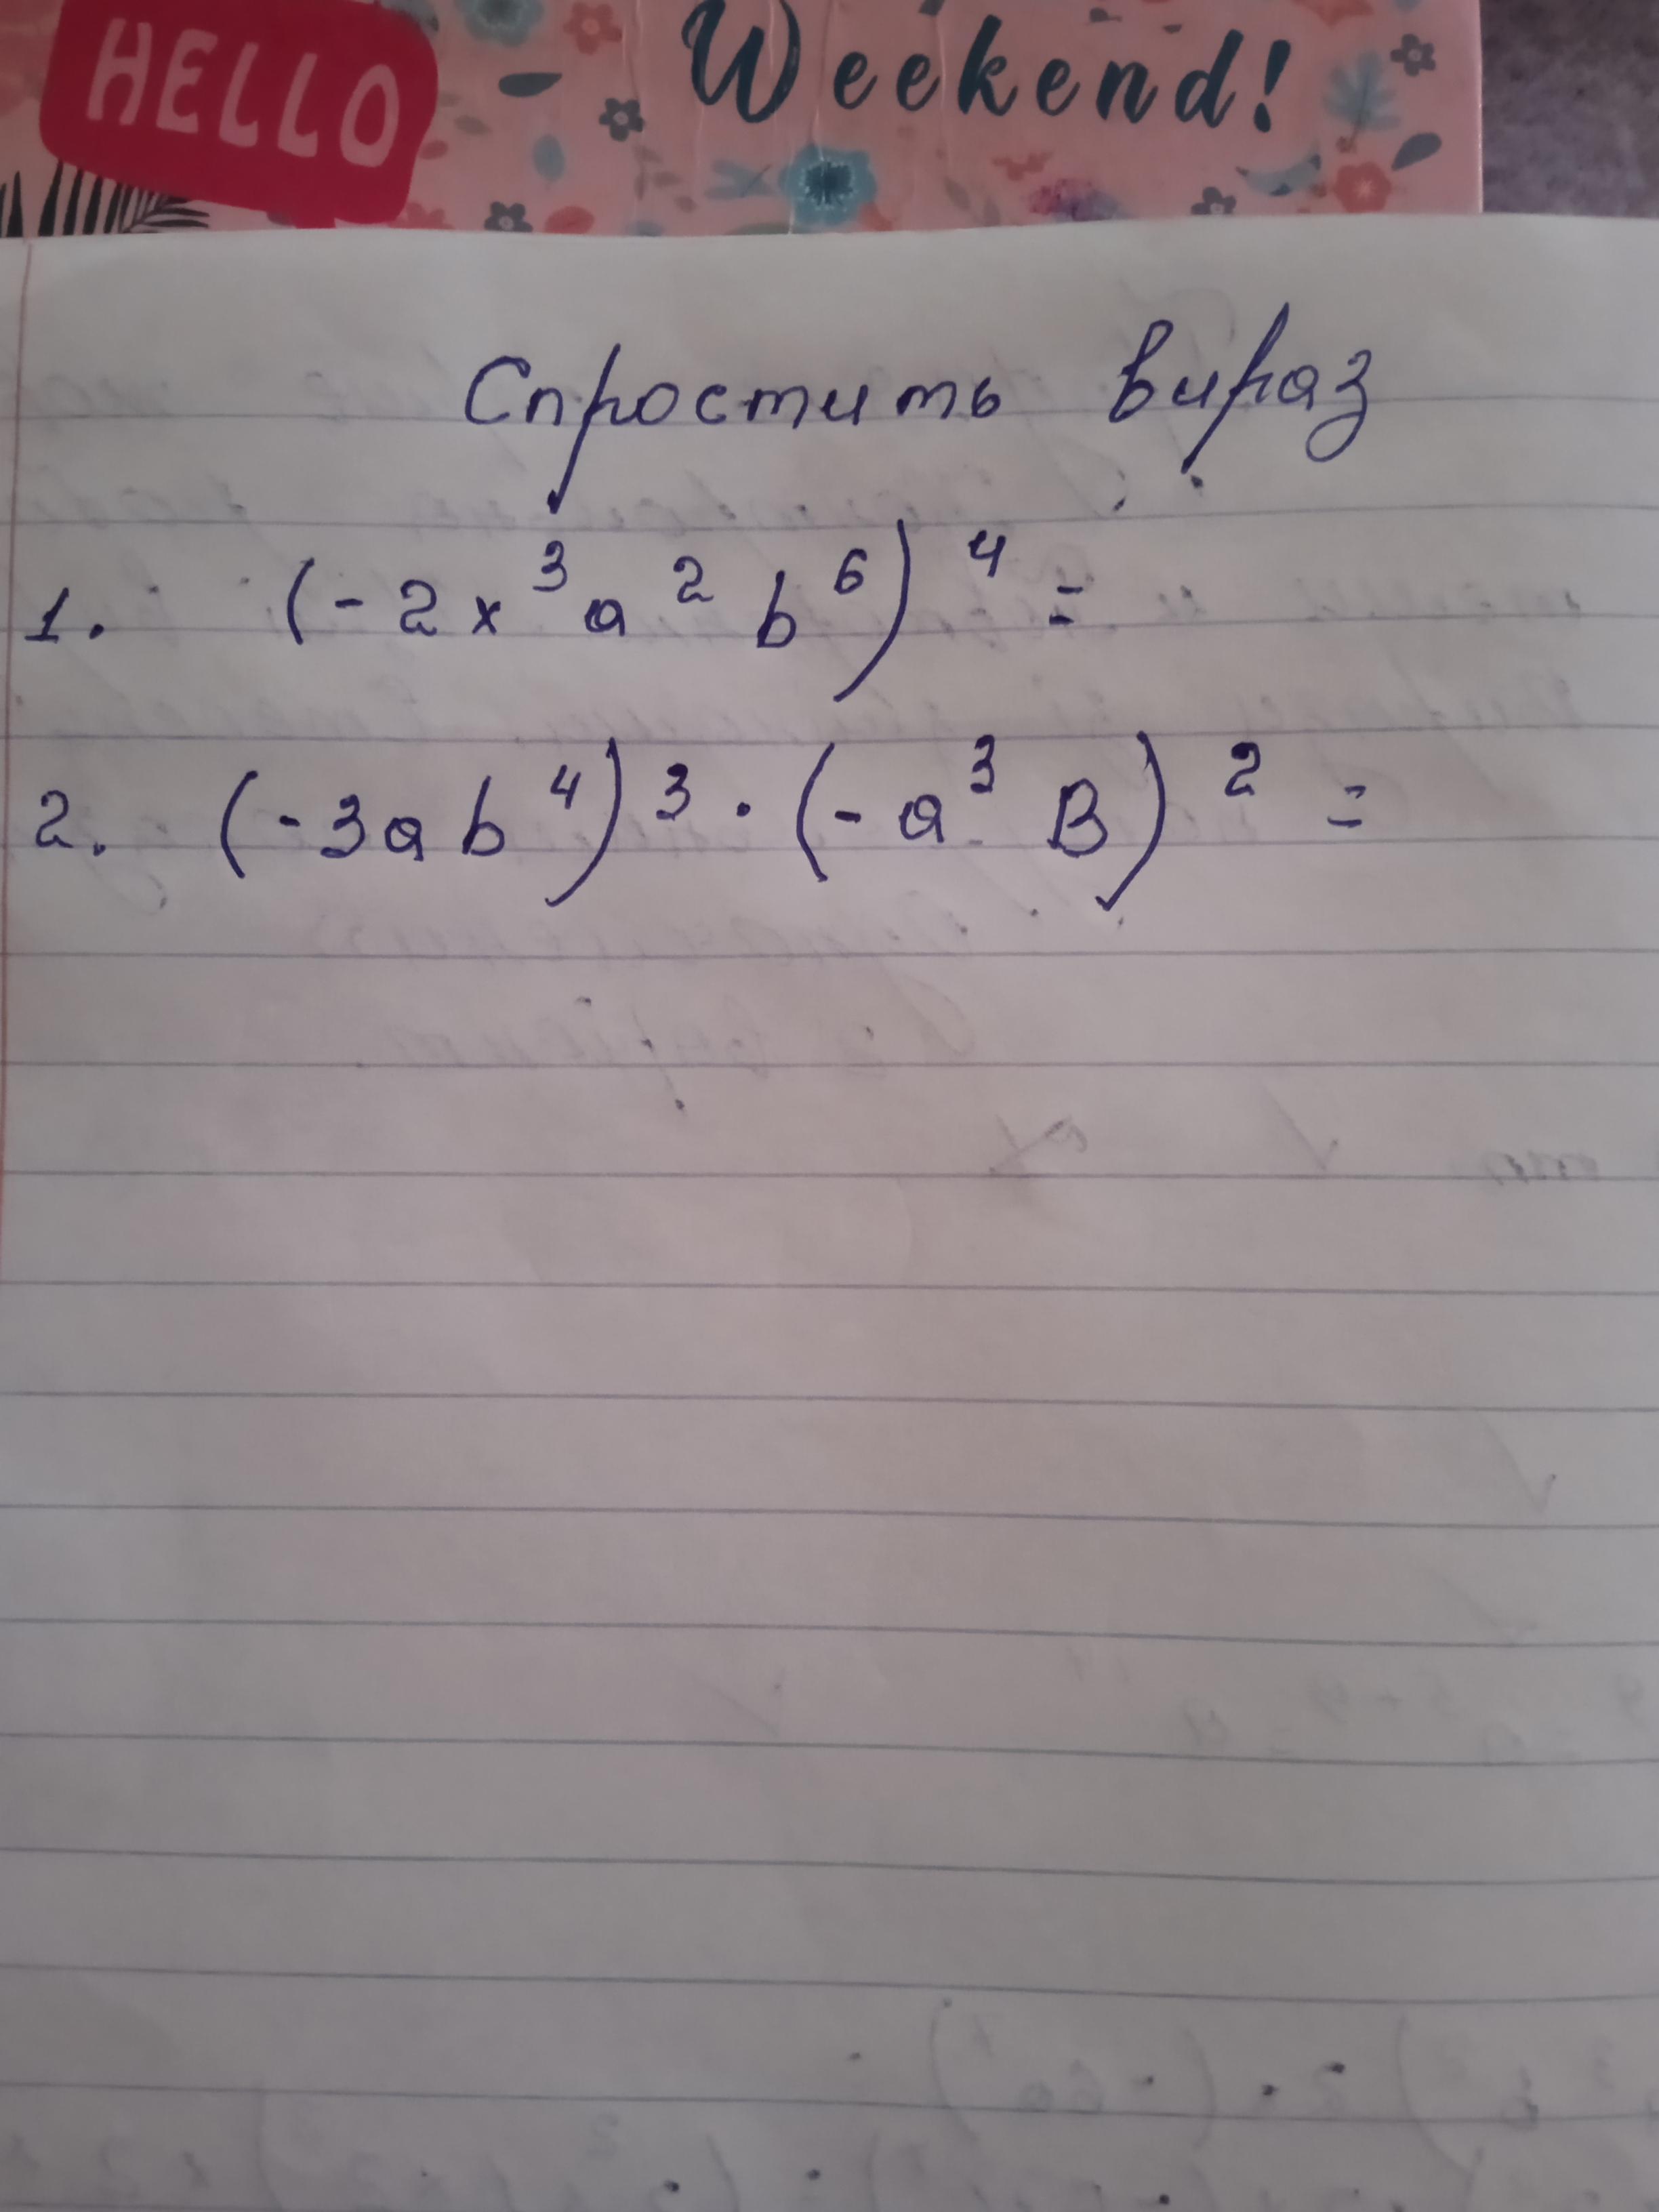 HELLO - Weekend!
Спростить вираз
1. (-2x³a²b⁶)⁴=
2. (-3ab⁴)³·(-a³B)²=